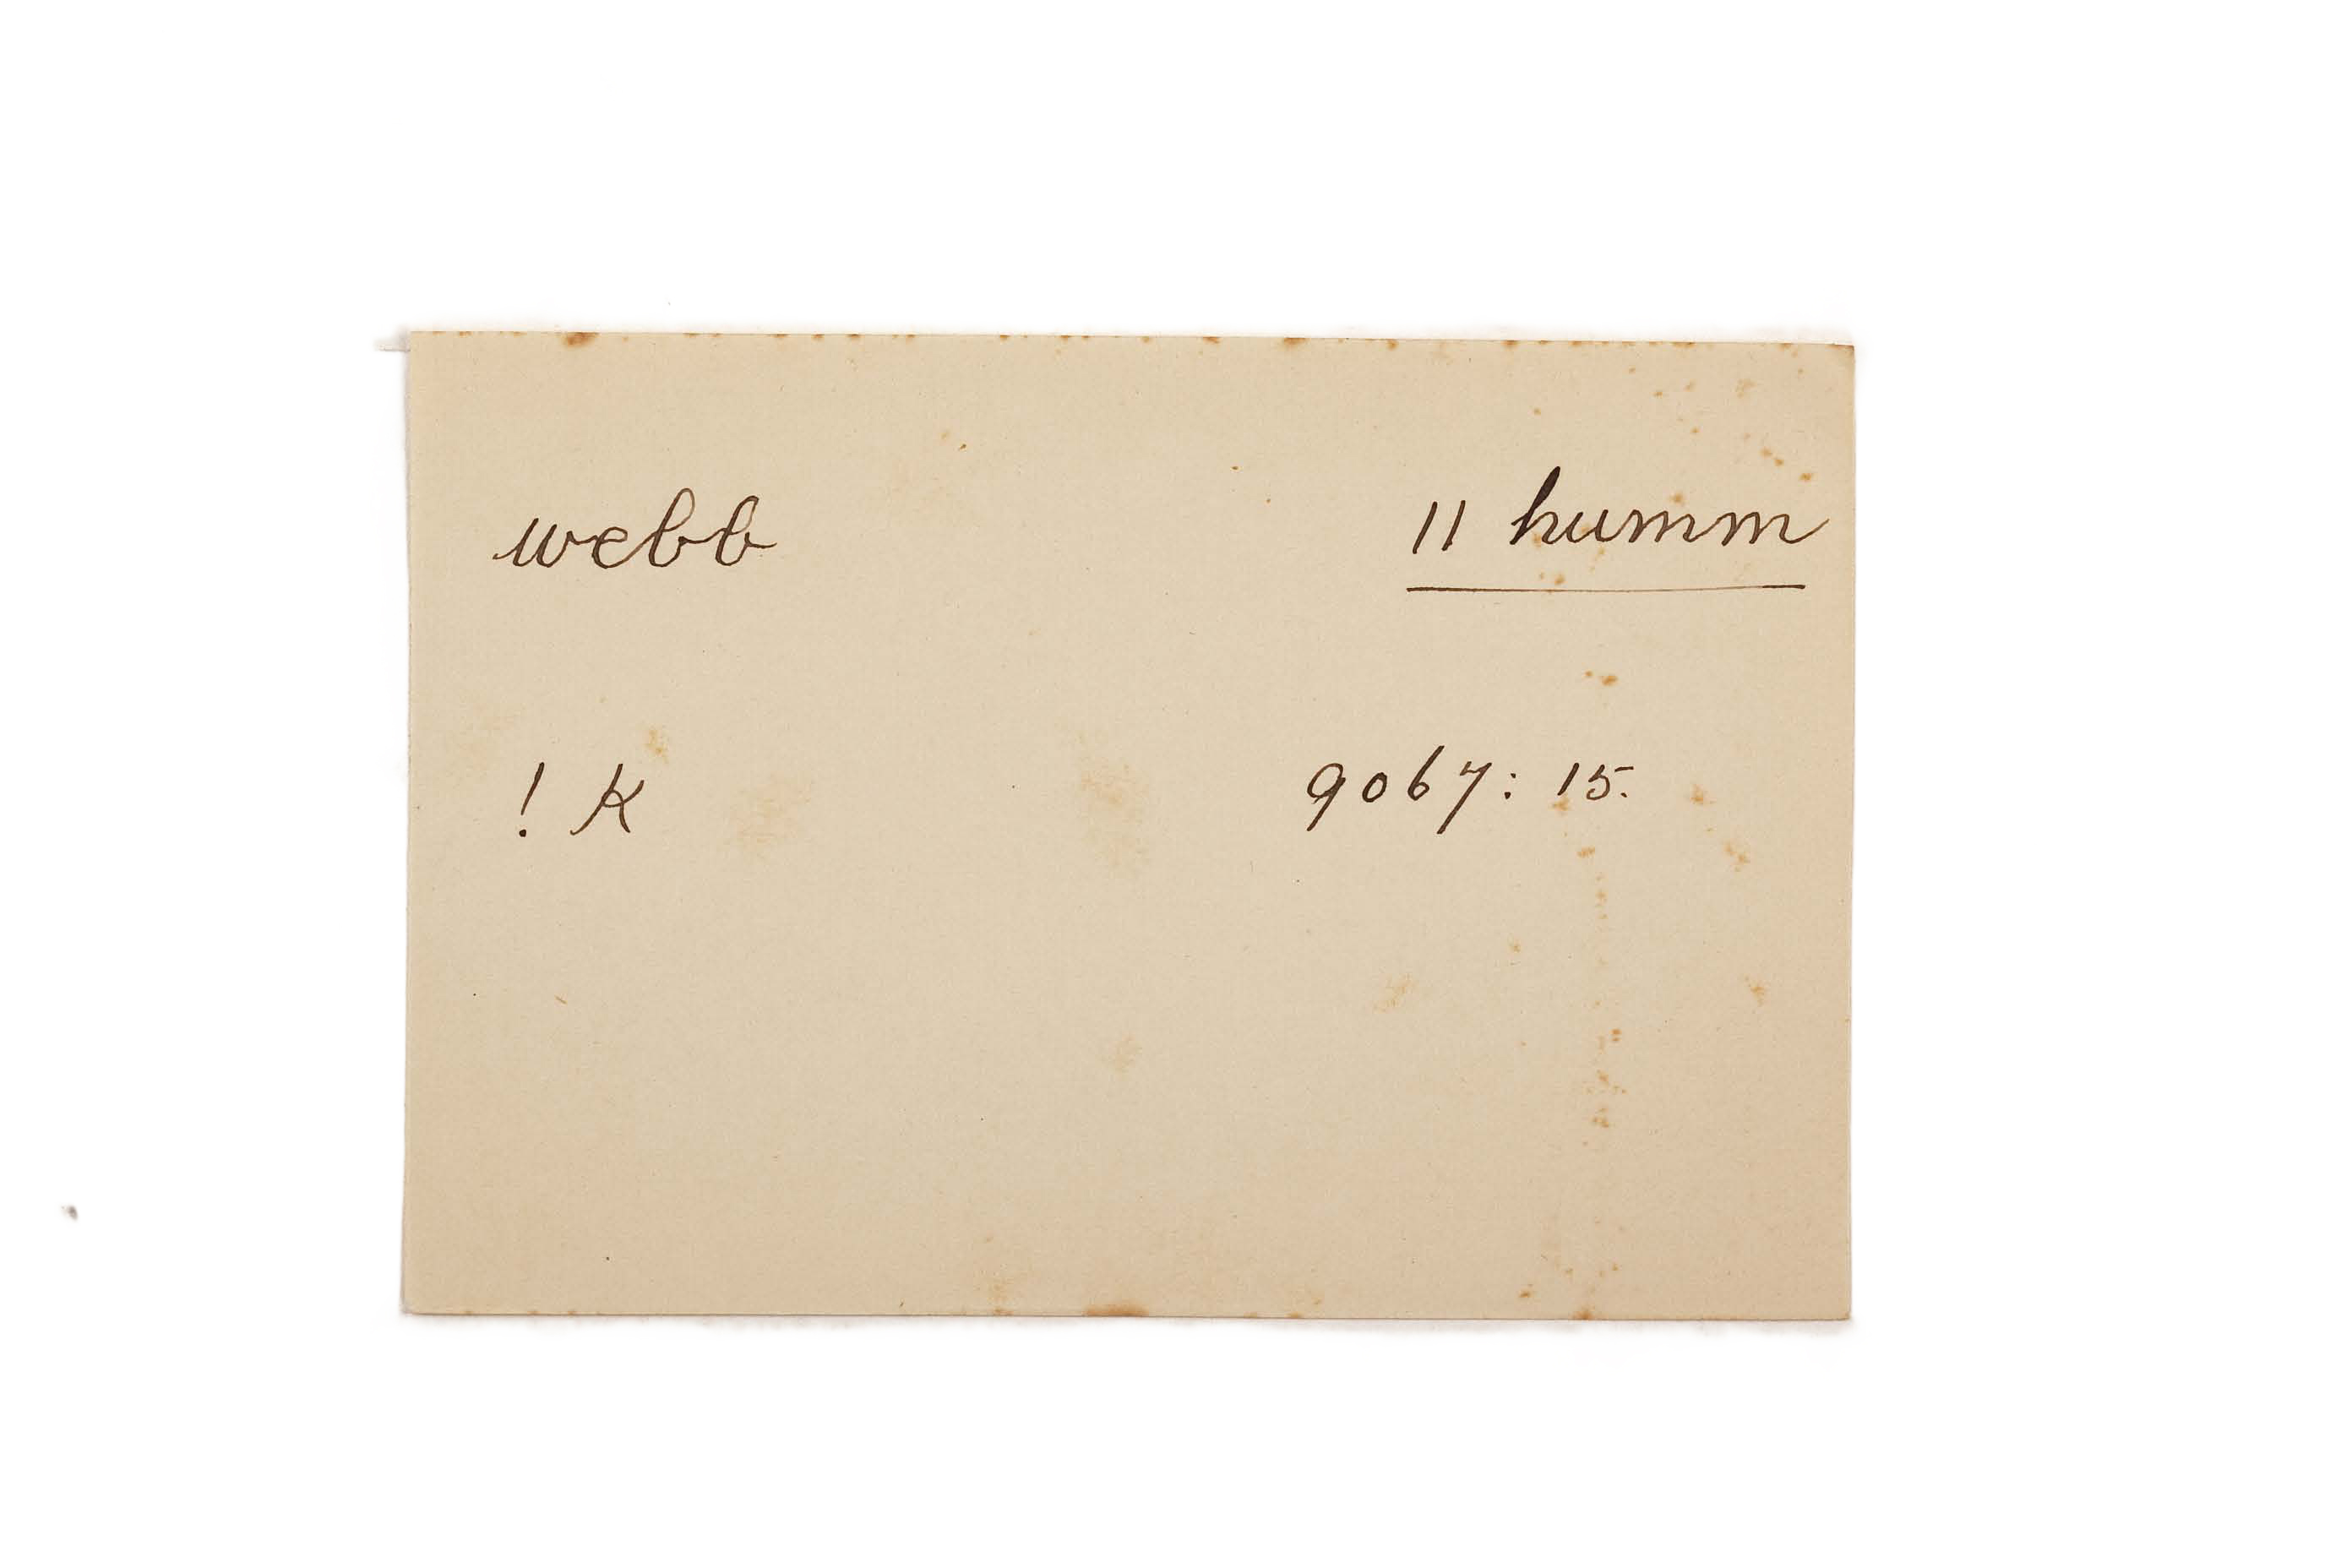 webb || humm
! K 9067: 15.